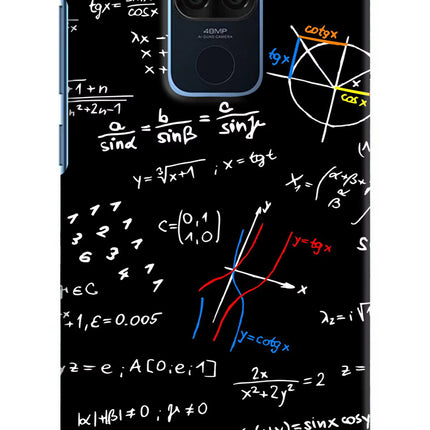 tgx = sinx / cosx
48MP
AI QUAD CAMERA
cotgx
tgx
x
cosx
λx -
x +
x +
+1 + n
n²+2n-1
a/sinα = b/sinβ = c/sinγ
y = ∛x+1 ; x = tgt
X₁ = (α+β+
β
1 1 1
7 2 1
6 3 1
4 1
C = (0,1
1,0)
y
y=tgx
x
y=cotgx
+1, ε = 0.005
λ₂ = i√
z = e ; A[0; e; 1]
2x / x²+2y² = 2
z =
|α|+|β| ≠ 0 ; γ ≠ 0
= sinx cosy